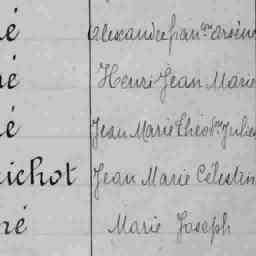 é Alexandre fran.ois arsène
né Henri Jean Marie
é Jean Marie Théo. Julien
ichot Jean Marie Célestin
né Marie Joseph